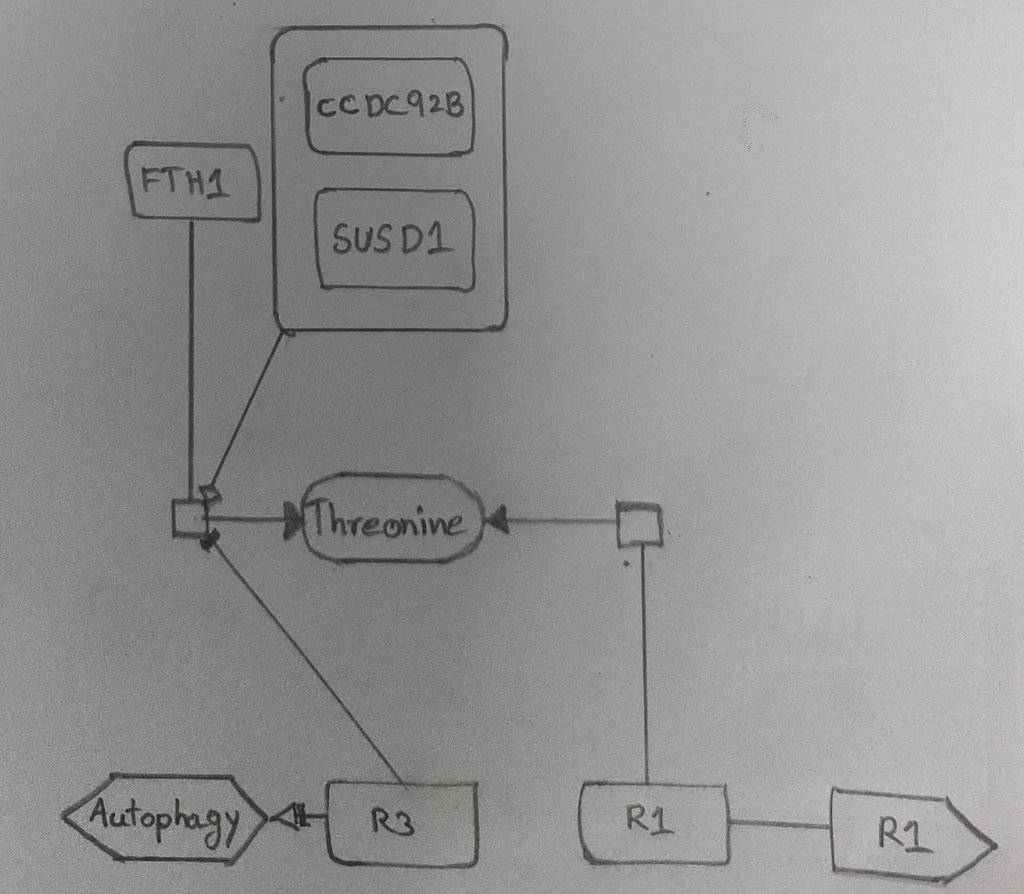 CCDC92B
FTH1
SUSD1
Threonine
Autophagy
R3
R1
R1